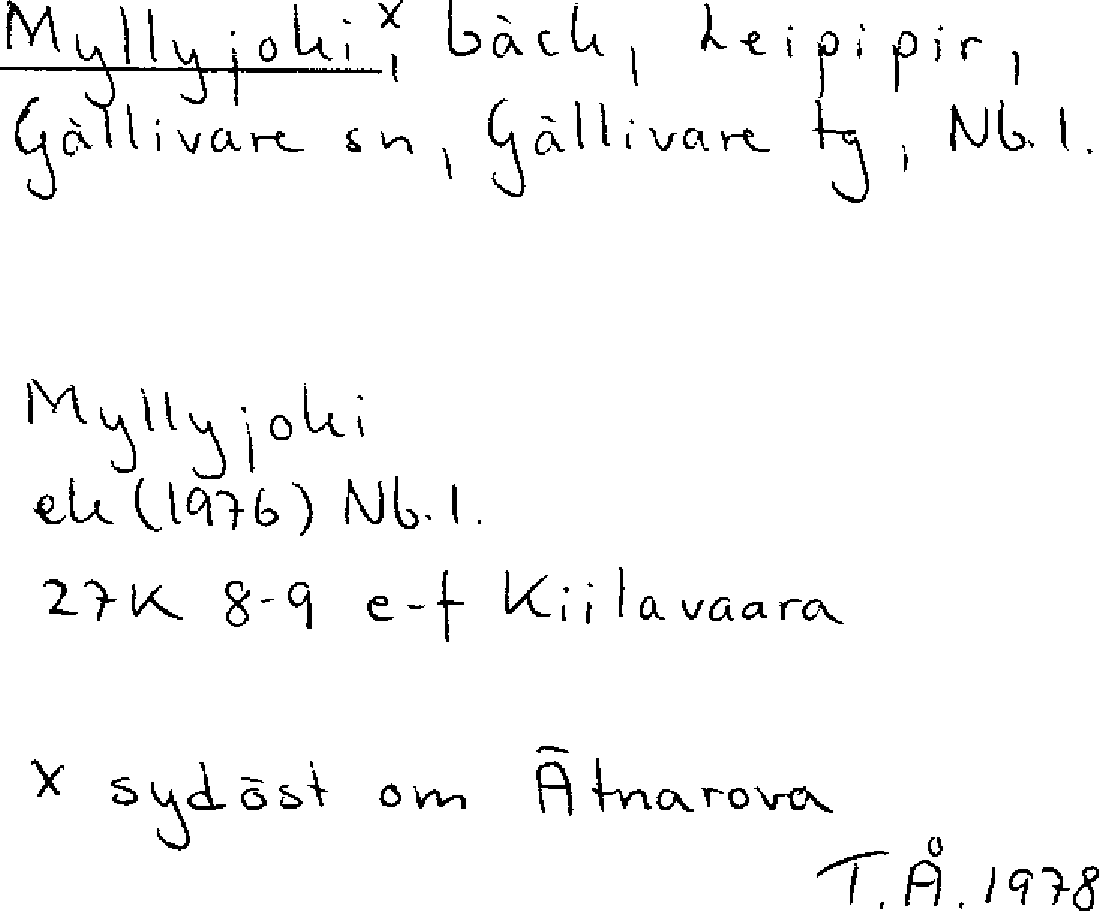 Myllyjoki,ˣ bäck, Leipipir,
Gällivare sn, Gällivare tg, Nb.l.
Myllyjoki
ek (1976) Nb.l.
27K 8-9 e-f Kiilavaara
x sydöst om Ätnarova
T.Å. 1978